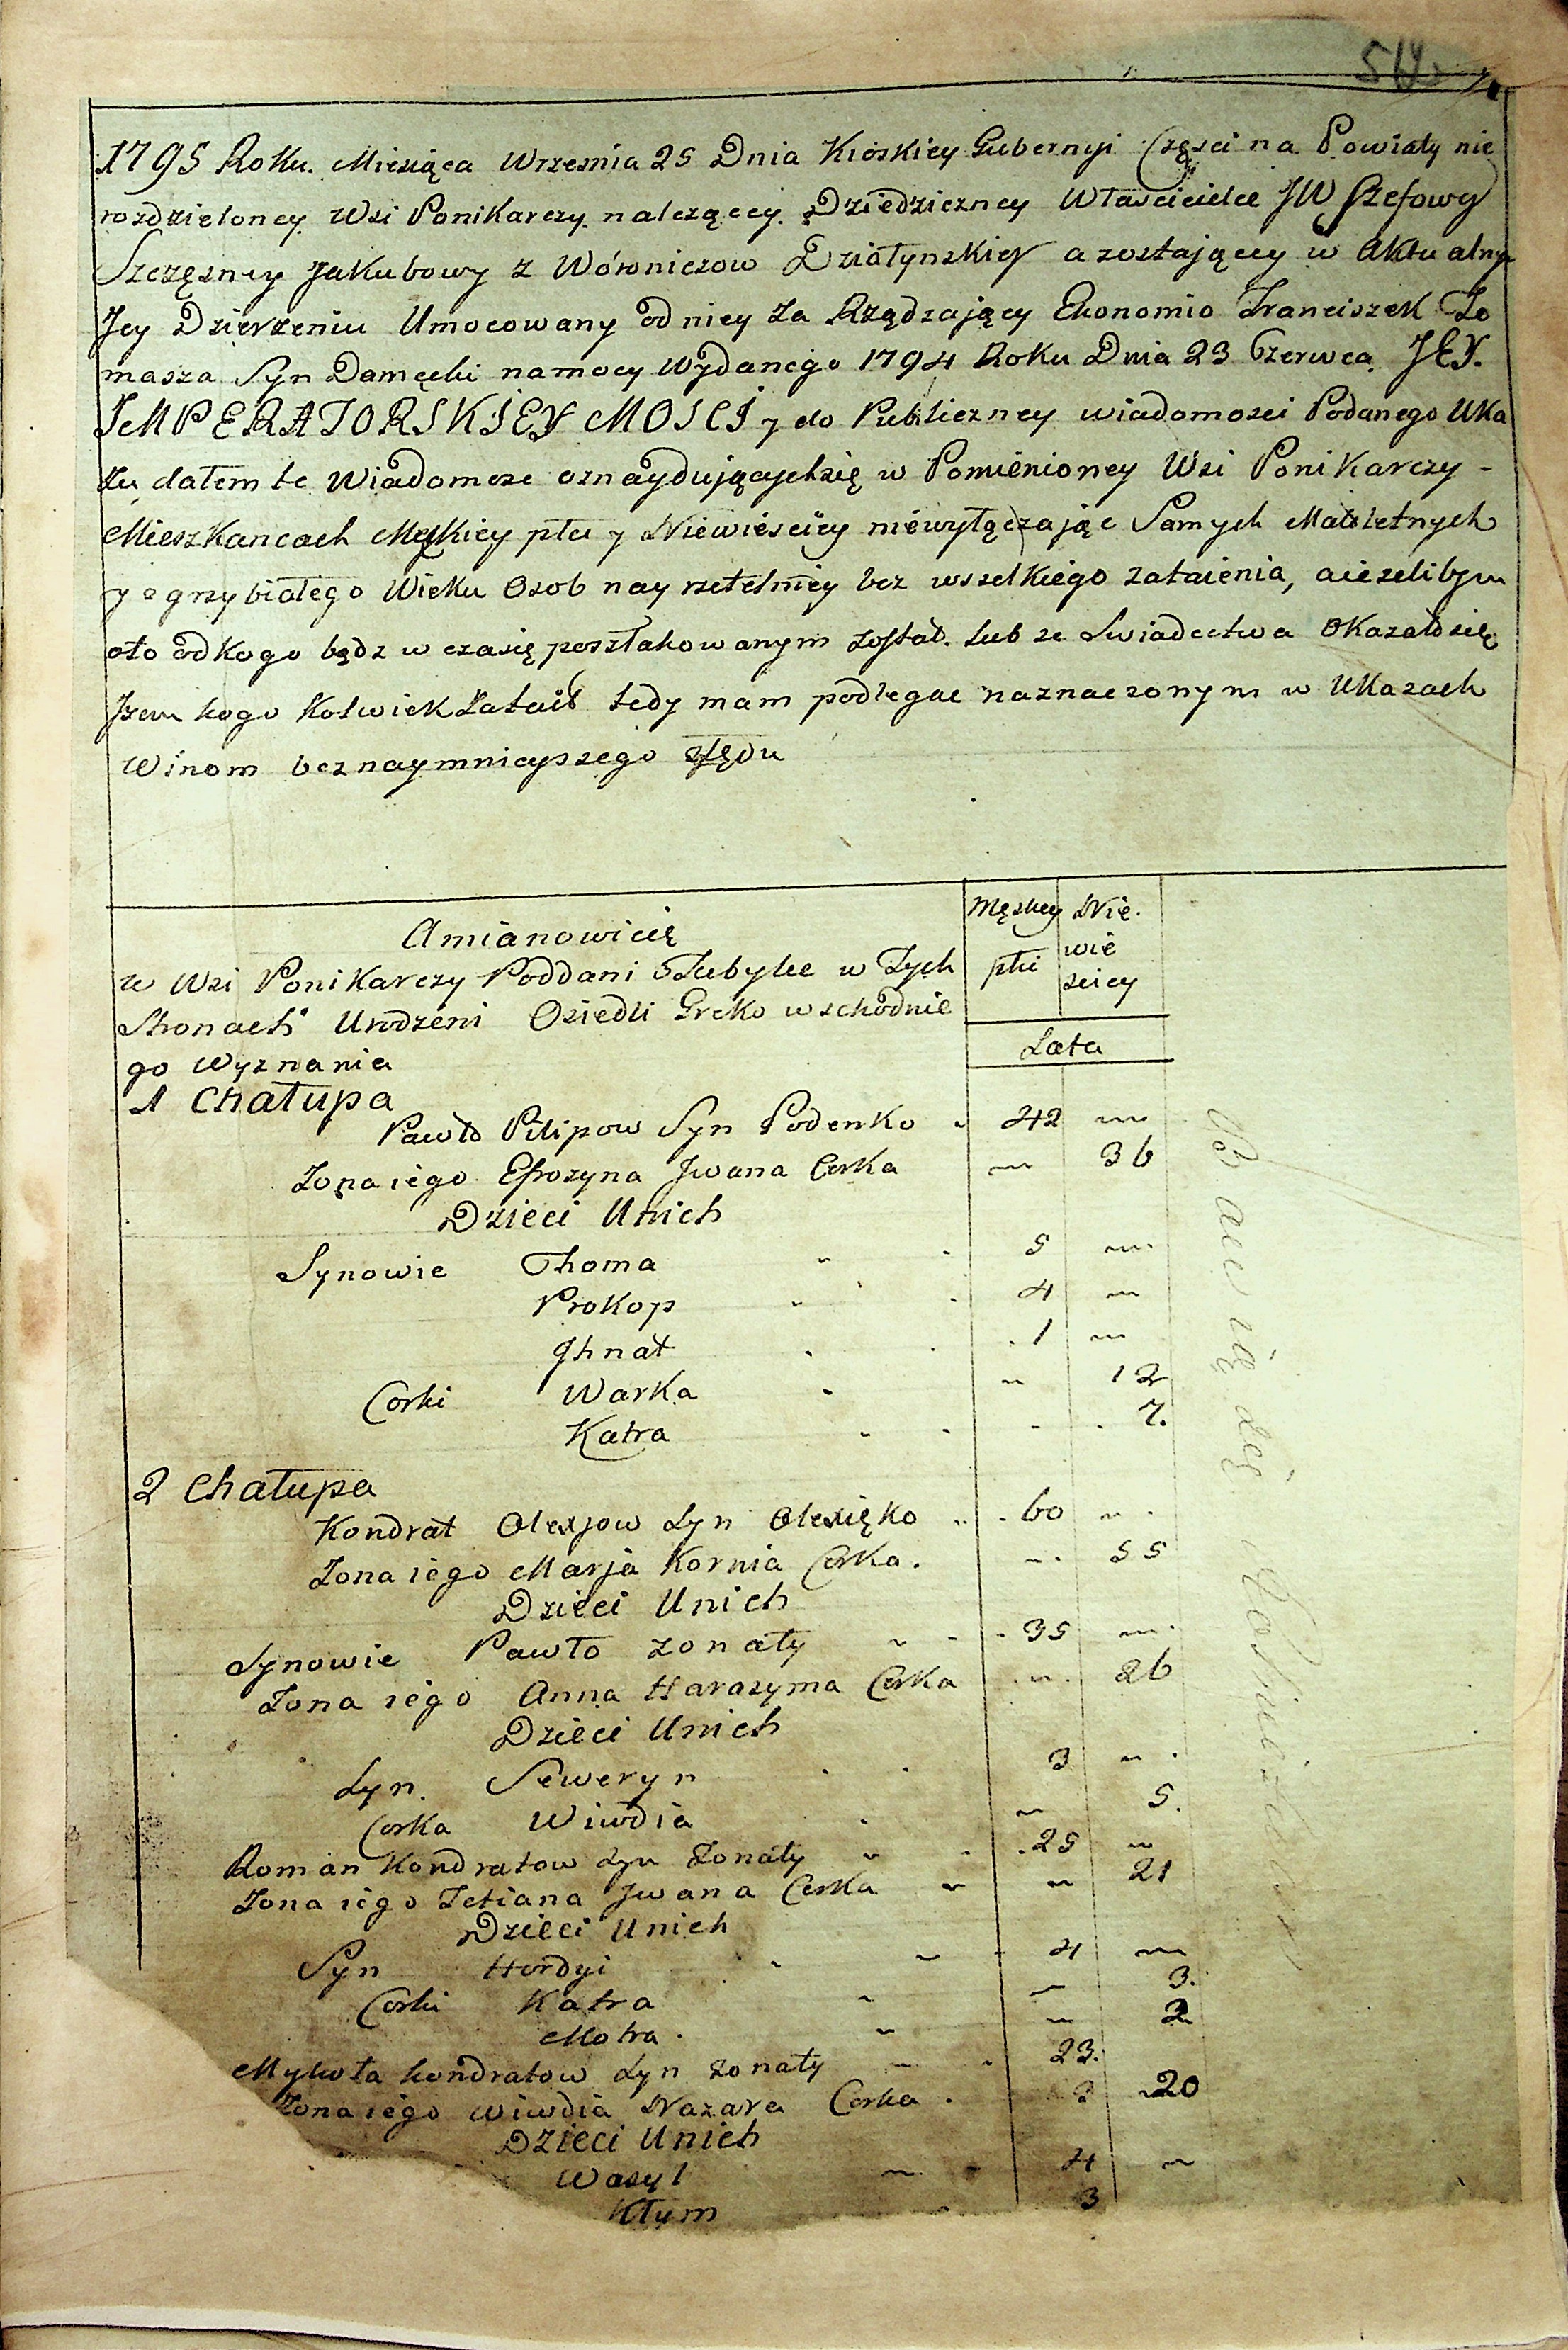 1795 Roku. Miesiąca Wrzesnia 25 Dnia Kiioskiey Gubernyi Częsci na Powiaty nie
rozdzieloney Wsi Ponikarczy należącey Dziedziczney Właścicielce JW Szefowy
Szczęsney Jakubowy z Wóroniczow Działynskiey a zostającey w Aktualnym
Jey Dzierżeniu Umocowany od niey Za Rządzający Ekonomio Franciszek To
masza Syn Damęcki na mocy Wydanego 1794 Roku Dnia 23 Czerwca JEY.
IMPERATORSKIEY MOSCI y do Publiczney wiadomosci Podanego Uka
zu dałem te Wiadomosc oznaydującychsię w Pomienioney Wsi Ponikarczy -
Mieszkancach Męskiey płci y Niewieściey niewyłączając Samych Małoletnych
y ogrzybiałego Wieku Osob nayrzetelniey bez wszelkiego zataienia, aieżelibym
oto odkogo bądz w czasię poszlakowanym został. lub ze Swiadectwa Okazałosię
Jżem kogo Kolwiek Zataił tedy mam podlegac naznaczonym w Ukazach
Winom beznaymnieyszego
Męskiey Nie.
płci wie
sciey
Lata
Amianowicię
w Wsi Ponikarczy Poddani Tubylce w Tych
Stronach Urodzeni Osiedli Greko wschodnie
go Wyznania
1 Chałupa
Pawło Pilipow Syn Podenko 42
Żona iego Efrozyna Jwana Corka 36
Dzieci Unich
Synowie Thoma 5
Prokop 4
Jhnat 1
Corki Warka 12
Katra 7.
2 Chałupa
Kondrat Olexjow Syn Olexięko 60
Żona iego Marja Kornia Corka. 55
Dzieci Unich
Synowie Pawło żonaty 35
Żona iego Anna Harasyma Corka 26
Dzieci Unich
Syn. Seweryn 3
Corka Wiwdia 5.
Roman Kondratow Syn Żonaty 25
Żona iego Tetiana Jwana Corka 21
Dzieci Unich
Syn Hordyi 4
Corki Katra 3.
Motra. 2
Mykoła Kondratow Syn żonaty 23.
Żona iego Wiwdia Nazara Corka. 20
Dzieci Unich
Wasyl 4
Kłym 3